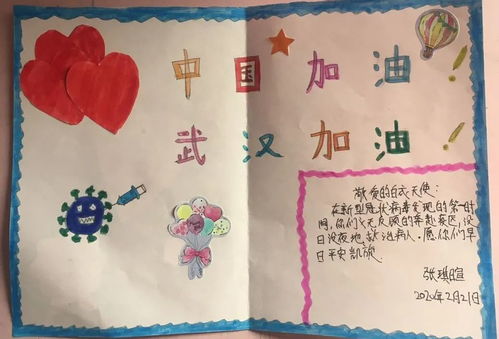 中国加油！
武汉加油！
敬爱的白衣天使：
在新型冠状病毒发现的第一时
间，你们义无反顾的奔赴疫区，没
日没夜地救治病人。愿你们早
日平安凯旋。
张琪暄
2020年2月21日